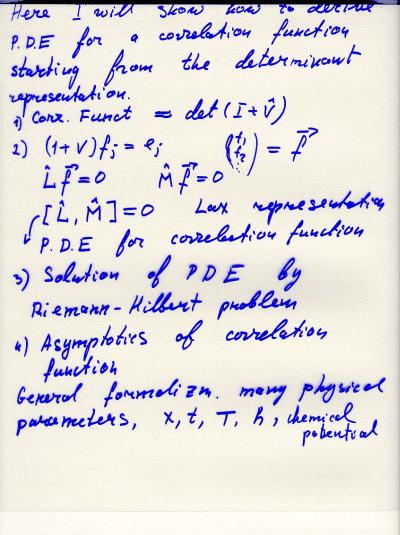 Here I will show how to derive
P.D.E for a correlation function
starting from the determinant
representation.
1) Corr. Funct ≈ det (I + V̂)
2) (1+V) fⱼ = eⱼ (f₁ f₂ ⋮) = F⃗
L̂ F⃗ = 0 M̂ F⃗ = 0
[L̂, M̂] = 0 Lax representation
P.D.E for correlation function
3) Solution of PDE by
Riemann-Hilbert problem
4) Asymptotics of correlation
function
General formalizm. many physical
parameters, x, t, T, h, chemical
potential